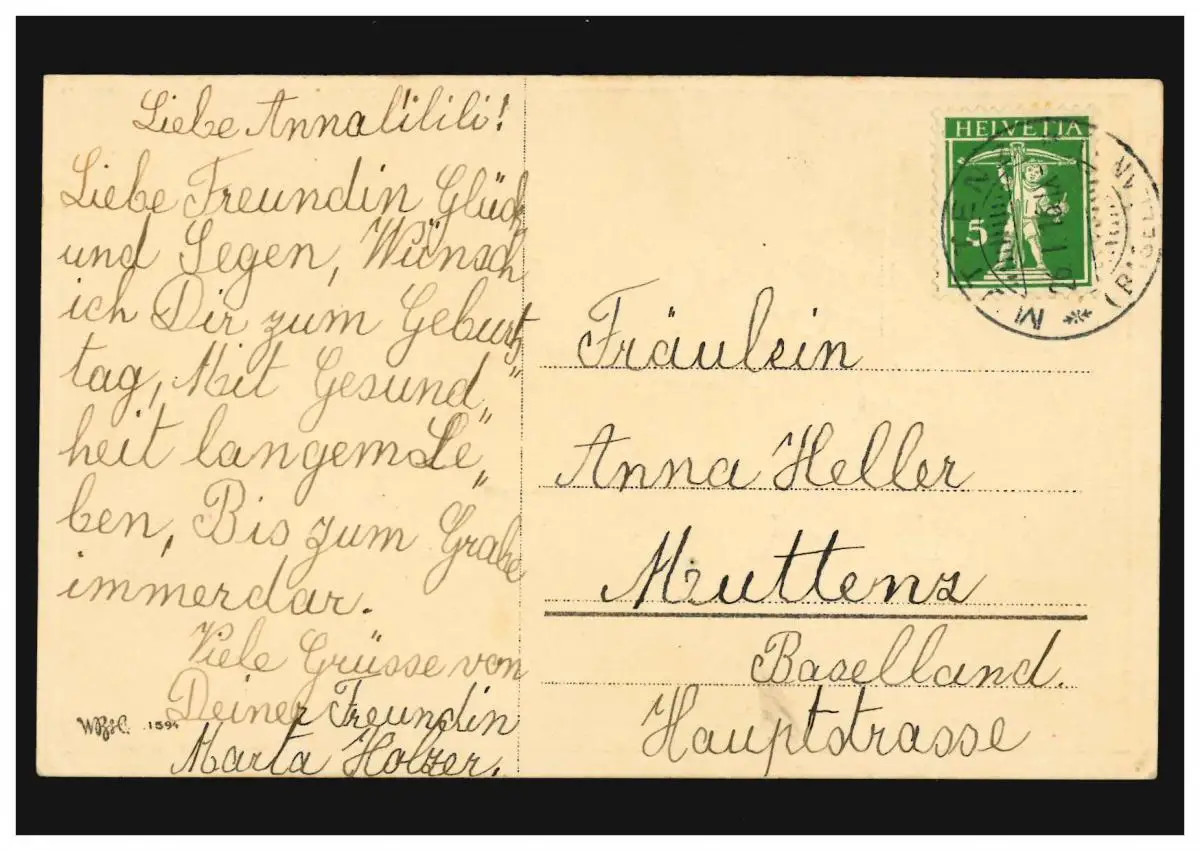 Liebe Annalilili!
Liebe Freundin Glück
und Segen, Wünsch
ich Dir zum Geburts„
tag, Mit Gesund„
heit langem Le„
ben, Bis zum Grabe
immerdar.
Viele Grüsse von
Deiner Freundin
Marta Holzer.
1594
HELVETIA
5
MUTTENZ
Fräulein
Anna Heller
Muttenz
Baselland.
Hauptstrasse